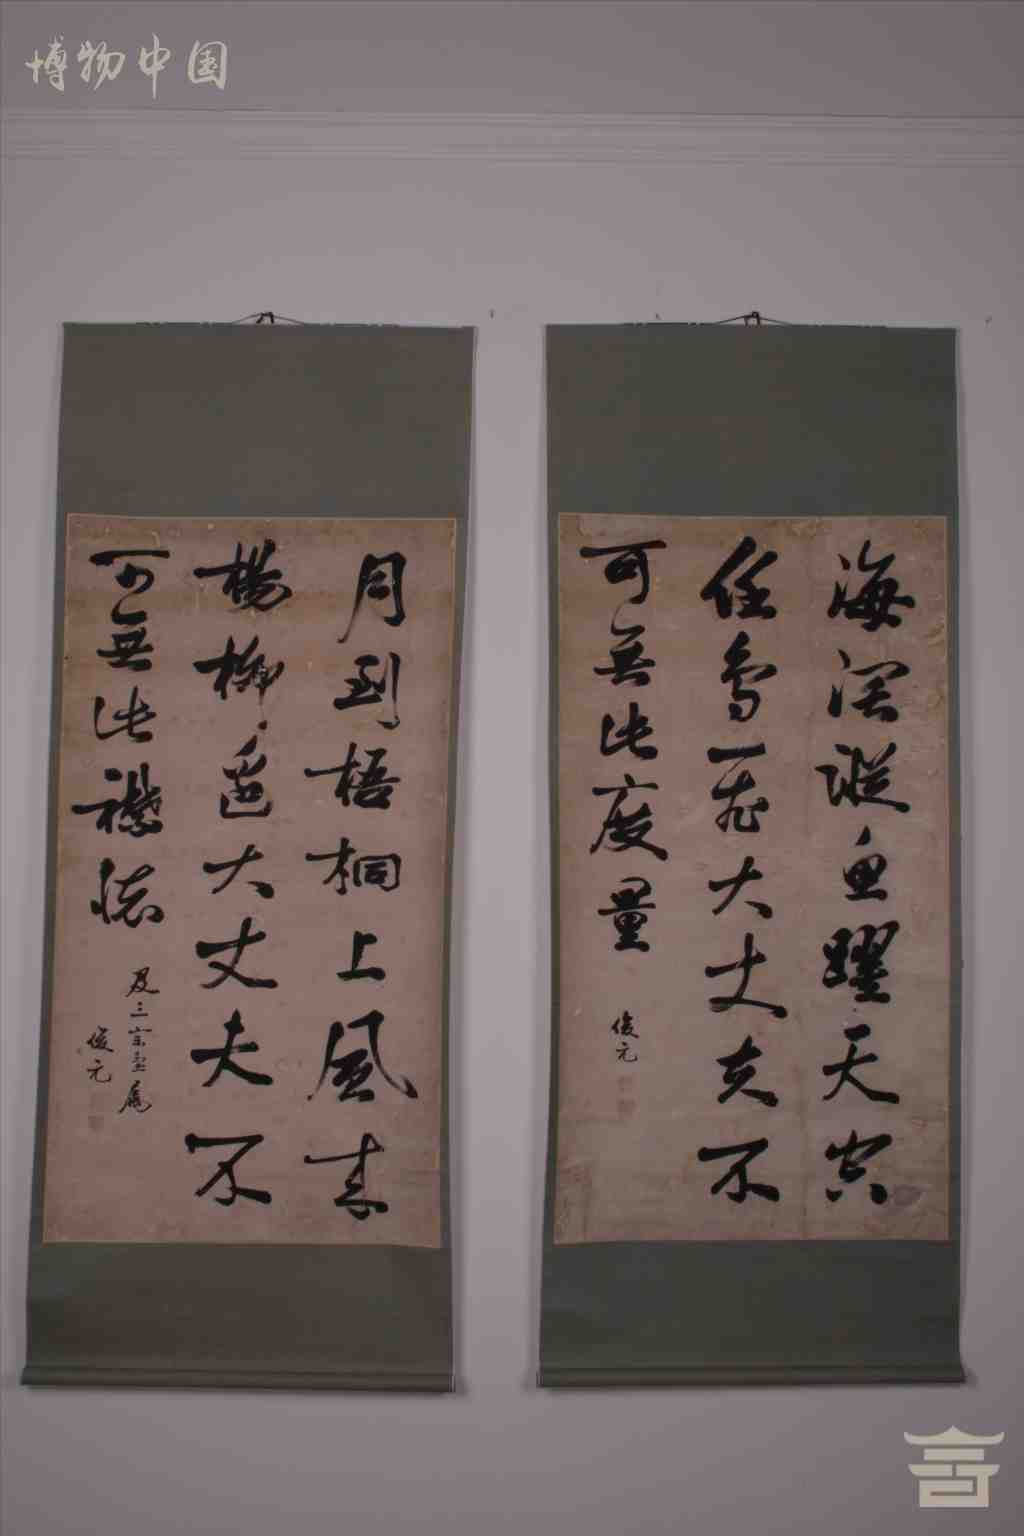 博物中国
海深縱魚躍天空
任鳥一飛大丈夫不
可無此度量
俊元
月到梧桐上風來
楊柳邊大丈夫不
可無此襟懷
俊元